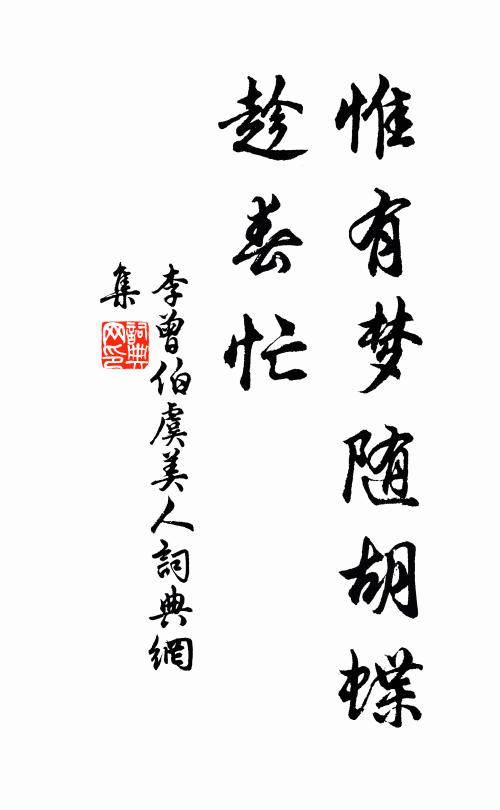 惟有梦随胡蝶
趁春忙
李曾伯虞美人詞典網
集
詞典
网印